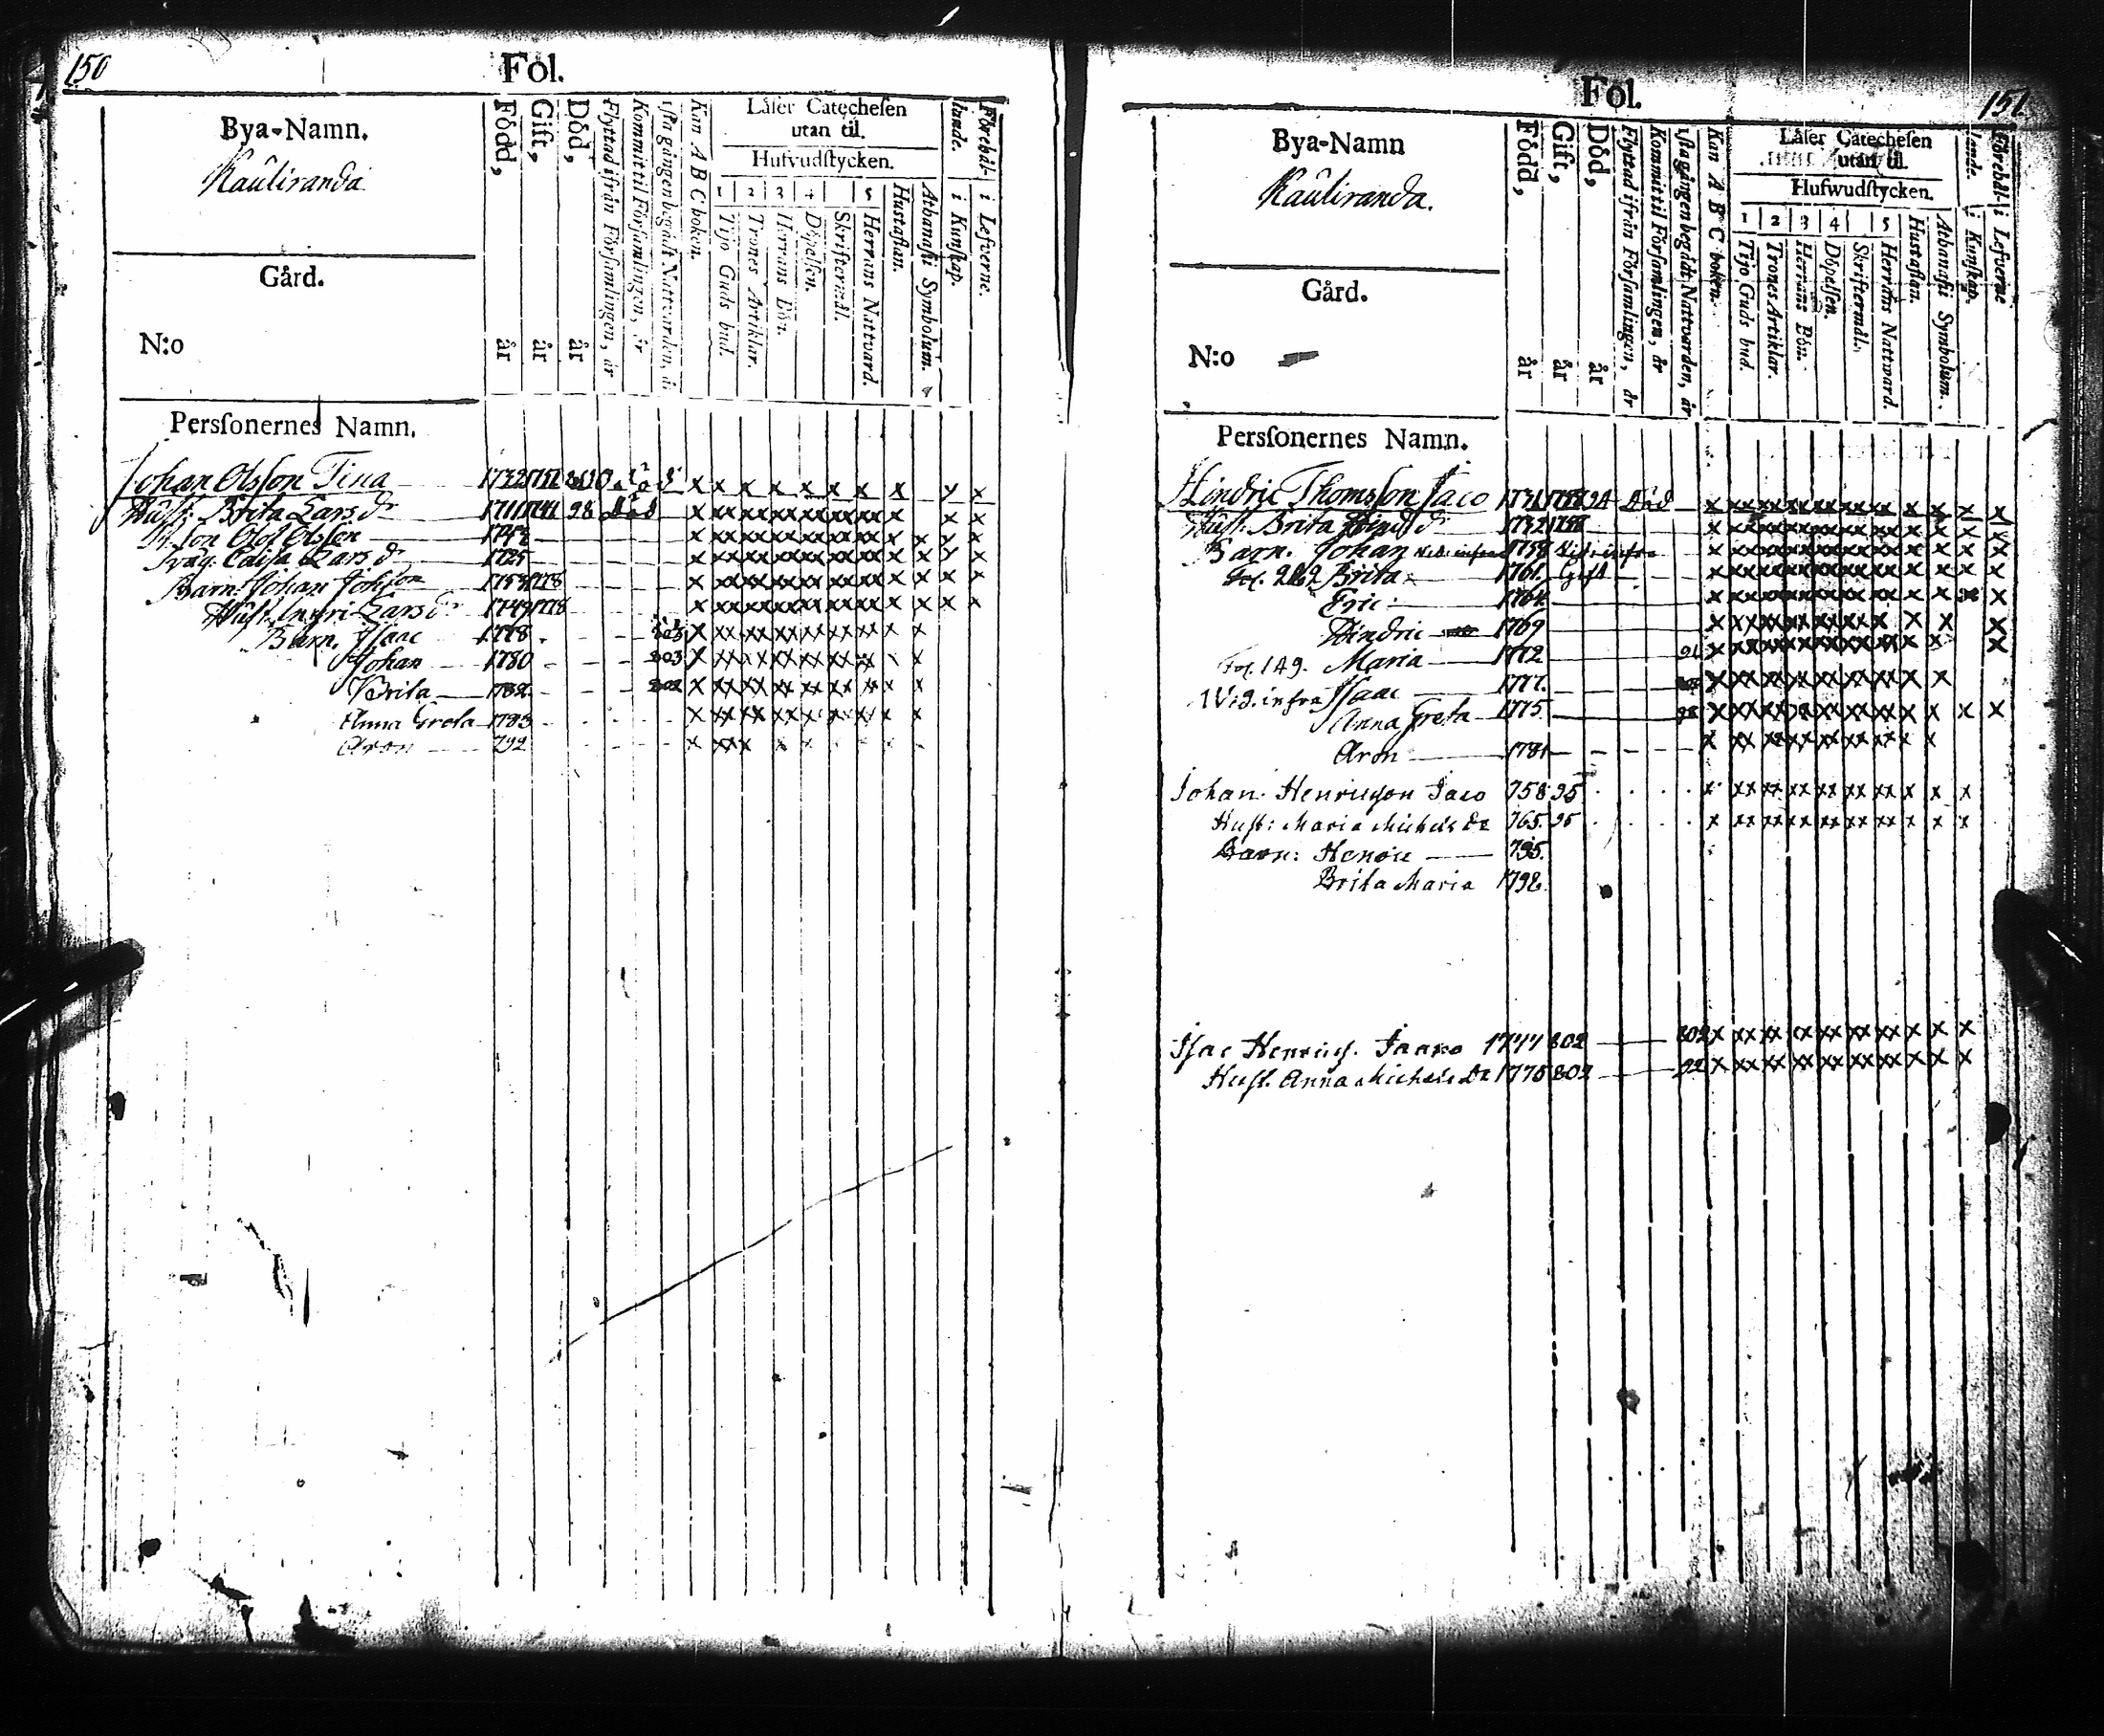 150
Fol.
Bya-Namn.
Kauliranda
Gård.
N:o
Född, år
Gift, år
Död, år
Flyttad ifrån Församlingen, år
Kommit til Församlingen, år
Kan A B C boken.
Läser Catechesen
utan til.
Hufvudstycken.
1 2 3 4 5
Tijo Guds bud.
Trones Artiklar.
Herrans Bön.
Döpelsen.
Skriftermål.
Herrans Nattvard.
Hustaflan.
Athanasii Symbolum.
Förehål-
lande.
i Kunskap.
i Lefverne.
Perssonernes Namn.
Johan Olsson Tina 1732
Hust. Brita Lars dr 1711 1741 98 död
Son Olof Olsson
Caisa Lars dr 1725
Barn. Johan Johsson 1753 1778
Hust. Ingri Lars dr 1749 1778
Barn. Isaac 1778
Johan 1780 803
Brita 1782 802
Anna Greta 1783
Aron 792
151
Fol.
Bya-Namn
Kauliranda.
Gård.
N:o
Född, år
Gift, år
Död, år
Flyttad ifrån Församlingen, år
Kommit til Församlingen, år
1sta gången begådt Nattvarden, år
Kan A B C boken.
Läser Catechesen
utan til.
Hufwudstycken.
1 2 3 4 5
Tijo Guds bud.
Trones Artiklar.
Herrans Bön.
Döpelsen.
Skriftermål.
Herrans Nattward.
Hustaflan.
Athanasii Symbolum.
Förehål-
lande.
i Kunskap.
i Lefverne
Perssonernes Namn.
Hindric Thomsson Jaco 1731 94 Död
Hust. Brita Hind dr 1732
Barn. Johan 1758 Vid. infra
Fol. 262 Brita 1761. Gift
Eric 1764.
Hindric 1769
Fol. 149. Maria 1772 91
Wid. infra Isaac 1777.
Anna Greta 1775
Aron 1781
Johan Henricsson Jaco 758 95
Hust: Maria Michels Dr 765. 95
Barn: Henric 795.
Brita Maria 1798
Isac Henrics. Jaako 1777 802 802
Hust. Anna Michels Dr 1775 802 92